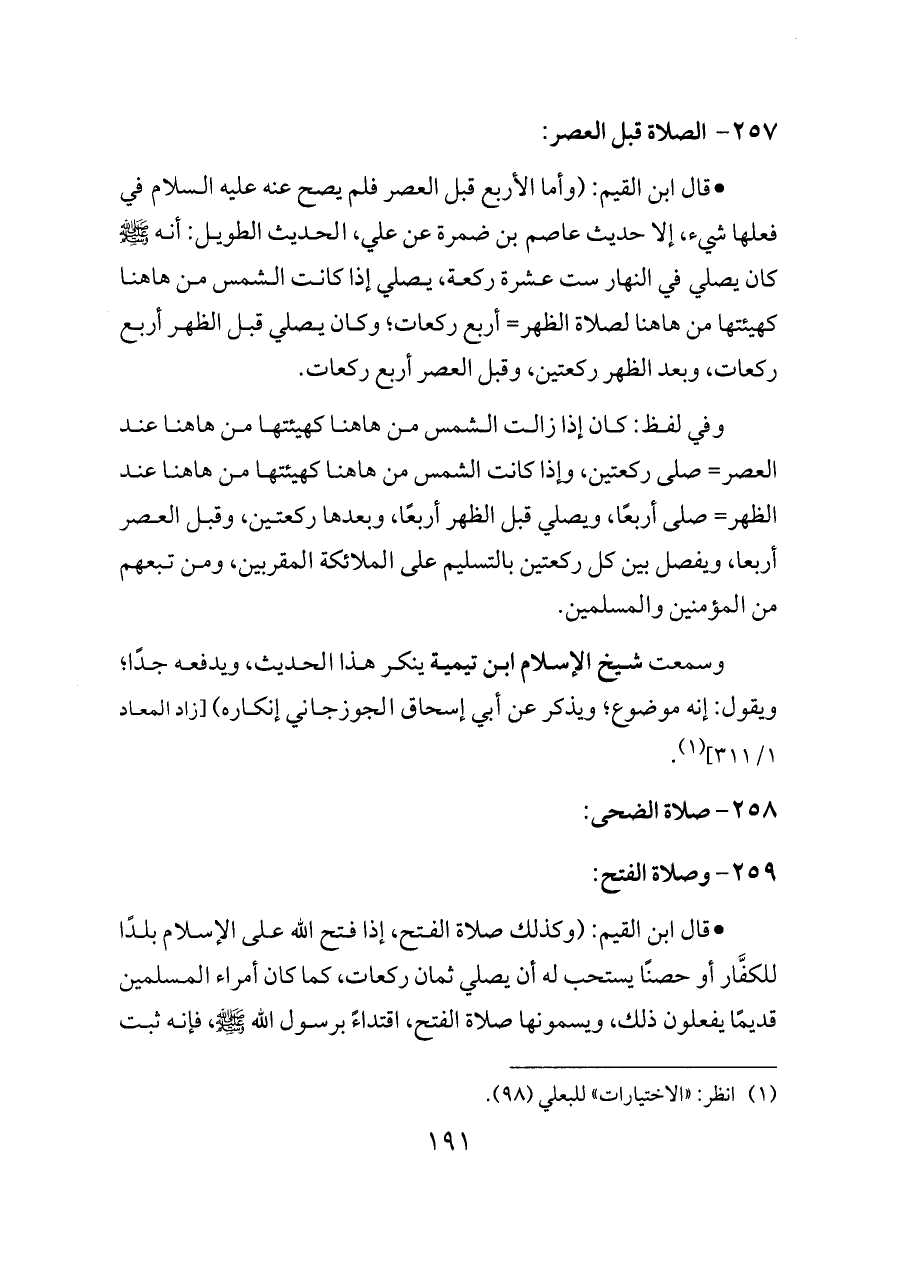 ٢٥٧- الصلاة قبل العصر:
• قال ابن القيم: (وأما الأربع قبل العصر فلم يصح عنه عليه السلام في
فعلها شيء، إلا حديث عاصم بن ضمرة عن علي، الحديث الطويل: أنه ﷺ
كان يصلي في النهار ست عشرة ركعة، يصلي إذا كانت الشمس من هاهنا
كهيئتها من هاهنا لصلاة الظهر= أربع ركعات؛ وكان يصلي قبل الظهر أربع
ركعات، وبعد الظهر ركعتين، وقبل العصر أربع ركعات.
وفي لفظ: كان إذا زالت الشمس من هاهنا كهيئتها من هاهنا عند
العصر= صلى ركعتين، وإذا كانت الشمس من هاهنا كهيئتها من هاهنا عند
الظهر= صلى أربعًا، ويصلي قبل الظهر أربعًا، وبعدها ركعتين، وقبل العصر
أربعا، ويفصل بين كل ركعتين بالتسليم على الملائكة المقربين، ومن تبعهم
من المؤمنين والمسلمين.
وسمعت شيخ الإسلام ابن تيمية ينكر هذا الحديث، ويدفعه جدًا؛
ويقول: إنه موضوع؛ ويذكر عن أبي إسحاق الجوزجاني إنكاره) [زاد المعاد
١/ ٣١١](١).
٢٥٨- صلاة الضحى:
٢٥٩- وصلاة الفتح:
• قال ابن القيم: (وكذلك صلاة الفتح، إذا فتح الله على الإسلام بلدًا
للكفَّار أو حصنًا يستحب له أن يصلي ثمان ركعات، كما كان أمراء المسلمين
قديمًا يفعلون ذلك، ويسمونها صلاة الفتح، اقتداءً برسول الله ﷺ، فإنه ثبت
(١) انظر: «الاختيارات» للبعلي (٩٨).
١٩١